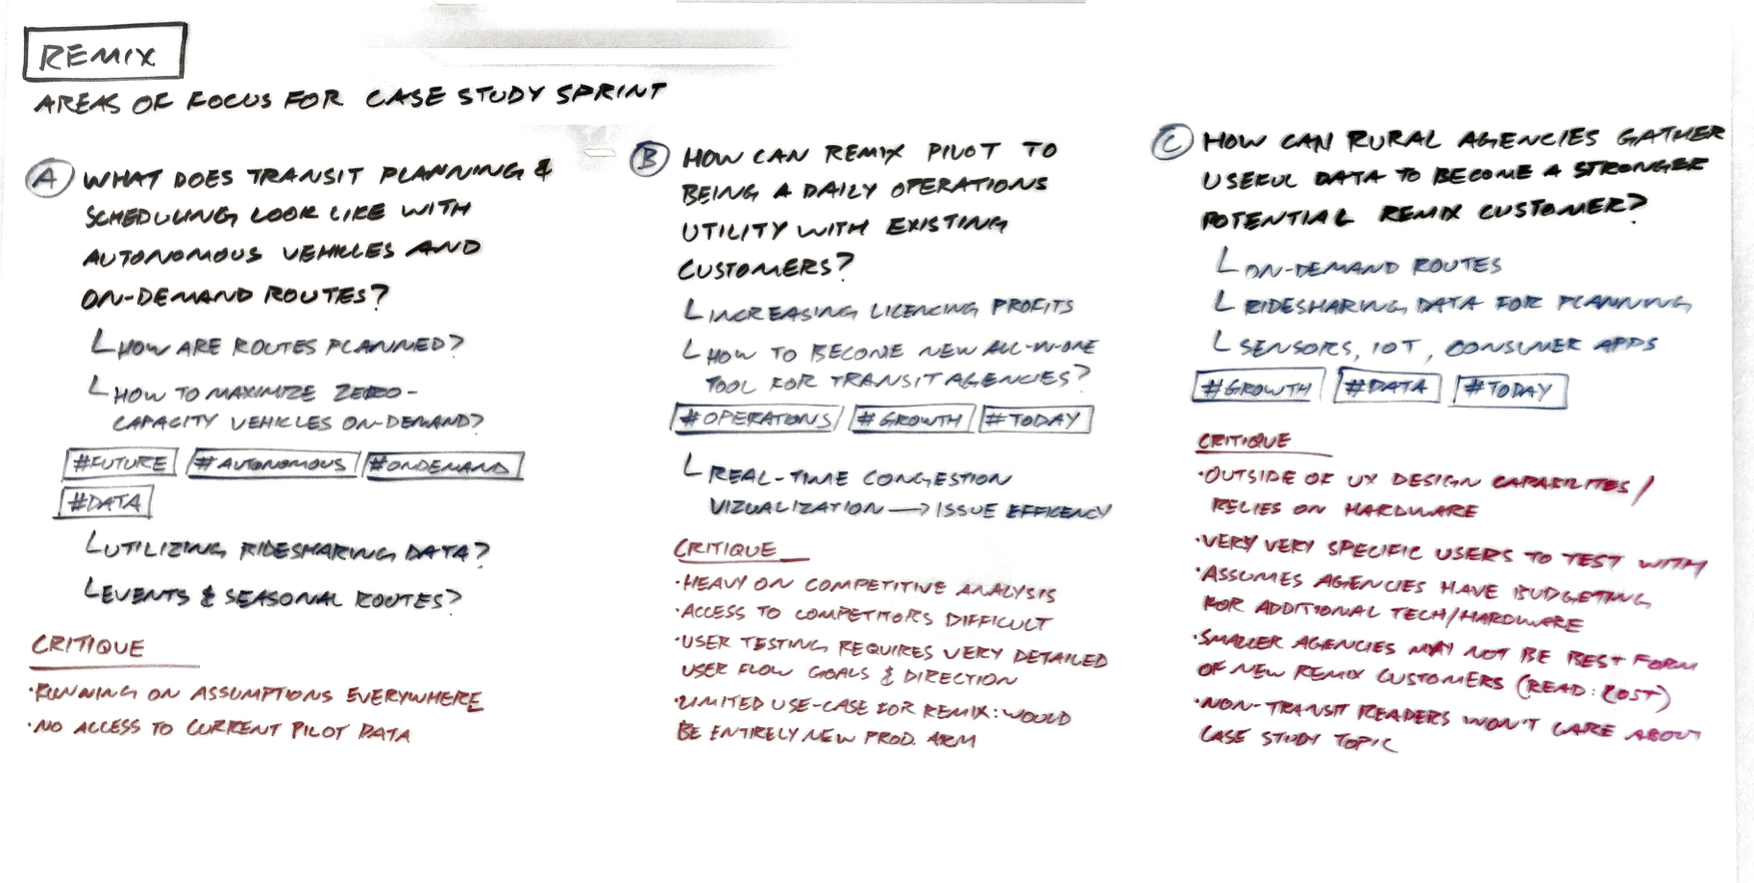 REMIX
AREAS OF FOCUS FOR CASE STUDY SPRINT
A WHAT DOES TRANSIT PLANNING &
SCHEDULING LOOK LIKE WITH
AUTONOMOUS VEHICLES AND
ON-DEMAND ROUTES?
HOW ARE ROUTES PLANNED?
HOW TO MAXIMIZE ZERO-
CAPACITY VEHICLES ON-DEMAND?
#FUTURE #AUTONOMOUS #ONDEMAND
#DATA
UTILIZING RIDESHARING DATA?
EVENTS & SEASONAL ROUTES?
CRITIQUE
·RUNNING ON ASSUMPTIONS EVERYWHERE
·NO ACCESS TO CURRENT PILOT DATA
B HOW CAN REMIX PIVOT TO
BEING A DAILY OPERATIONS
UTILITY WITH EXISTING
CUSTOMERS?
INCREASING LICENCING PROFITS
HOW TO BECOME NEW ALL-IN-ONE
TOOL FOR TRANSIT AGENCIES?
#OPERATIONS #GROWTH #TODAY
REAL-TIME CONGESTION
VIZUALIZATION → ISSUE EFFICENCY
CRITIQUE
·HEAVY ON COMPETITIVE ANALYSIS
·ACCESS TO COMPETITORS DIFFICULT
·USER TESTING REQUIRES VERY DETAILED
USER FLOW GOALS & DIRECTION
·LIMITED USE-CASE FOR REMIX: WOULD
BE ENTIRELY NEW PROD. ARM
C HOW CAN RURAL AGENCIES GATHER
USEFUL DATA TO BECOME A STRONGER
POTENTIAL REMIX CUSTOMER?
ON-DEMAND ROUTES
RIDESHARING DATA FOR PLANNING
SENSORS, IOT, CONSUMER APPS
#GROWTH #DATA #TODAY
CRITIQUE
·OUTSIDE OF UX DESIGN CAPABILITES/
RELIES ON HARDWARE
·VERY VERY SPECIFIC USERS TO TEST WITH
·ASSUMES AGENCIES HAVE BUDGETING
FOR ADDITIONAL TECH/HARDWARE
·SMALLER AGENCIES MAY NOT BE BEST FORM
OF NEW REMIX CUSTOMERS (READ: COST)
·NON-TRANSIT READERS WON'T CARE ABOUT
CASE STUDY TOPIC